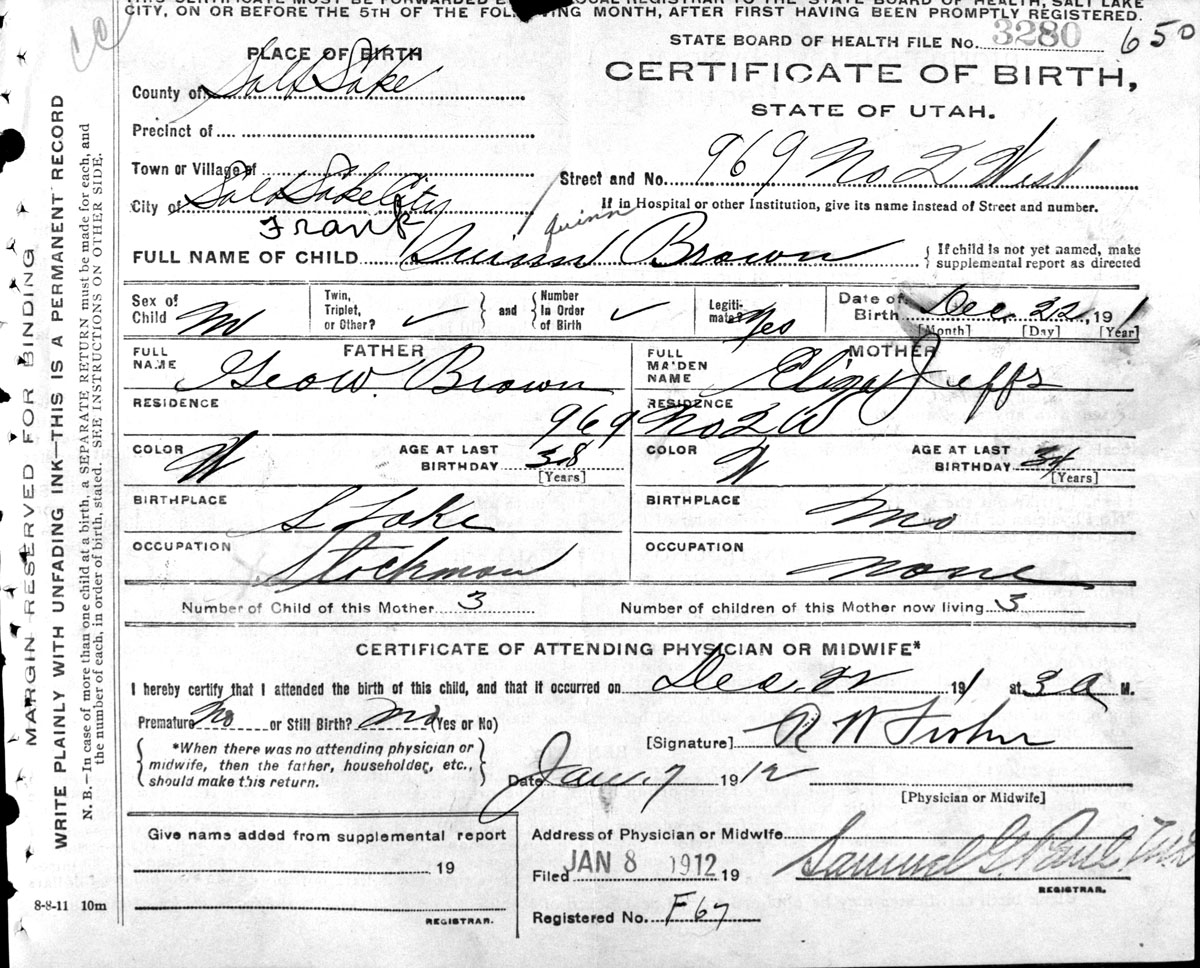 CITY, ON OR BEFORE THE 5TH OF THE FOLLOWING MONTH, AFTER FIRST HAVING BEEN PROMPTLY REGISTERED.
STATE BOARD OF HEALTH FILE No. 3280 650
CERTIFICATE OF BIRTH,
STATE OF UTAH.
PLACE OF BIRTH
County of Salt Lake
Precinct of
Town or Village of
Street and No. 969 No 2 West
City of Salt Lake City
If in Hospital or other Institution, give its name instead of Street and number.
Frank Quinn
FULL NAME OF CHILD Quinn Brown
{ If child is not yet named, make supplemental report as directed
Sex of Child M
Twin, Triplet, or Other? ✓ } and { Number In Order of Birth ✓
Legiti-mate? Yes
Date of Birth Dec. 22, 191 1
[Month] [Day] [Year]
FATHER
FULL NAME Geo W. Brown
MOTHER
FULL MAIDEN NAME Eliza Jeffs
RESIDENCE 969 No 2 W
RESIDENCE
COLOR W
AGE AT LAST BIRTHDAY 38
[Years]
COLOR W
AGE AT LAST BIRTHDAY 34
[Years]
BIRTHPLACE S Lake
BIRTHPLACE Mo
OCCUPATION Stockman
OCCUPATION None
Number of Child of this Mother 3
Number of children of this Mother now living 3
CERTIFICATE OF ATTENDING PHYSICIAN OR MIDWIFE*
I hereby certify that I attended the birth of this child, and that it occurred on Dec. 22 191 1 at 3 a M.
Premature No or Still Birth? No (Yes or No)
{ *When there was no attending physician or midwife, then the father, householder, etc., should make this return. }
[Signature] R W Fisher
Date Jan. 7 1912
[Physician or Midwife]
Give name added from supplemental report
19
REGISTRAR.
Address of Physician or Midwife
Filed JAN 8 1912 19 Samuel G. Paul
REGISTRAR.
Registered No. F 67
8-8-11 10m
MARGIN RESERVED FOR BINDING
WRITE PLAINLY WITH UNFADING INK—THIS IS A PERMANENT RECORD
N. B.—In case of more than one child at a birth, a SEPARATE RETURN must be made for each, and
the number of each, in order of birth, stated. SEE INSTRUCTIONS ON OTHER SIDE.